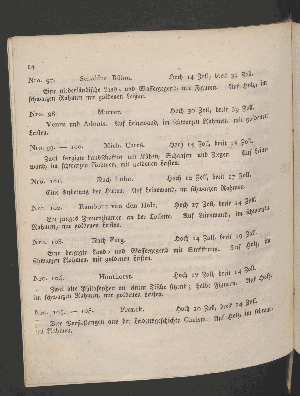 14
Nro. 97. Böhm. Hoch 24 Zoll, breit 32 Zoll.
Eine niederländische Land- und Wassergegend, mit Figuren. Auf Holz, im
schwarzen Rahmen mit goldenen Leisten.
Nro. 98. Hoch 30 Zoll, breit Zoll.
Venus und Adonis. Auf Leinwand, im schwarzen Rahmen, mit goldenen
Leisten.
Nro. 99. — 100. Hoch 15 Zoll, breit 18 Zoll.
Zwei bergigte Landschaften mit Kühen, Schaafen und Ziegen. Auf Lein-
wand, im schwarzen Rahmen, mit goldenen Leisten.
Nro. 101. Nach Hoch 12 Zoll, breit 17 Zoll.
Eine Anbetung der Hirten. Auf Leinwand, im schwarzen Rahmen.
Nro. 102. Rombout van den Hoch 17 Zoll, breit 14 Zoll.
Ein junges Frauenzimmer an der Toilette. Auf Leinwand, im schwarzen
Rahmen, mit goldenen Leisten.
Nro. 103. Nach Hoch 14 Zoll, breit 19 Zoll.
Eine bergigte Land- und Wassergegend mit Auf Holz, im
schwarzen Rahmen, mit goldenen Leisten.
Nro. 104. Hoch 17 Zoll, breit 14 Zoll.
Zwei alte Philosophen an einem Tische sitzend; halbe Figuren. Auf Holz,
im schwarzen Rahmen, mit goldenen Leisten.
Nro. 105. — 108. Franck. Hoch 20 Zoll, breit 24 Zoll.
Vier Vorstellungen aus der Leidensgeschichte Christi. Auf Holz, im schwar-
zen Rahmen.